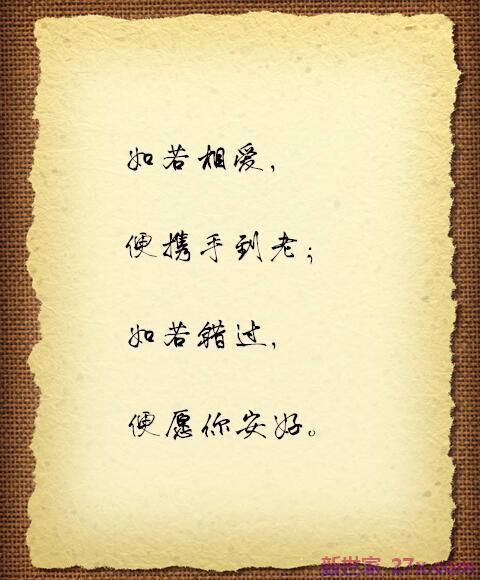 如若相爱，
便携手到老；
如若错过，
便愿你安好。
新世家 27x.com